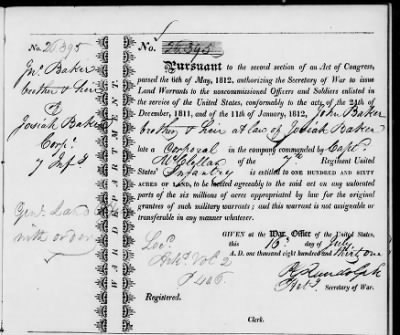 No. 26395
Jno. Baker
brother & heir
of
Josiah Baker
Corpl.
7 Inf.
WAR DEPARTMENT
No. 26,395
Pursuant to the second section of an Act of Congress,
passed the 6th of May, 1812, authorizing the Secretary of War to issue
Land Warrants to the noncommissioned Officers and Soldiers enlisted in
the service of the United States, conformably to the acts of the 24th of
December, 1811, and of the 11th of January, 1812, John Baker
brother & heir at law of Josiah Baker
late a Corporal in the company commanded by Capt.
McClellan of the 7th Regiment United
States' Infantry is entitled to ONE HUNDRED AND SIXTY
ACRES OF LAND, to be located agreeably to the said act on any unlocated
parts of the six millions of acres appropriated by law for the original
grantees of such military warrants; and this warrant is not assignable or
transferable in any manner whatever.
GIVEN at the War Office of the United States,
this 16th day of July
A. D. one thousand eight hundred and thirty one
Vol 2
P 406
P G Randolph
Secretary of War.
Registered.
Clerk.